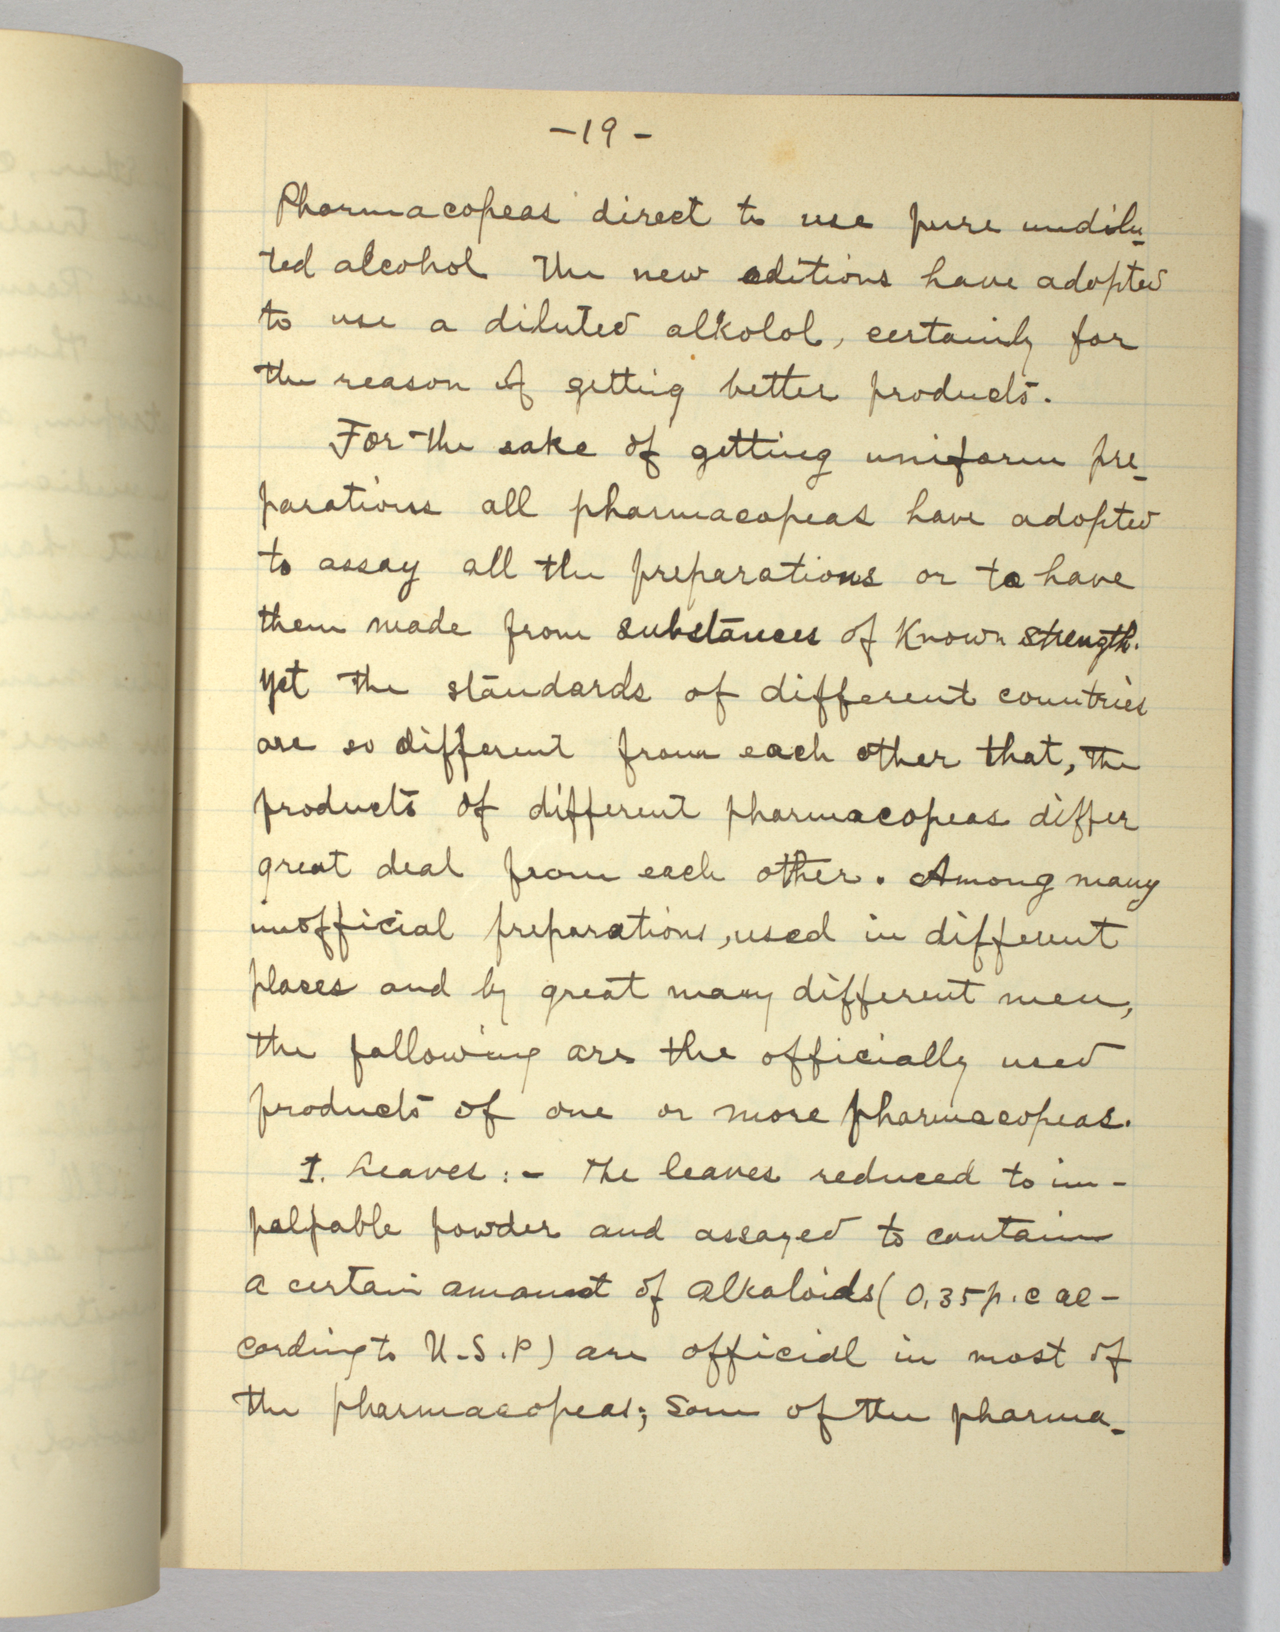 -19-
Pharmacopeas direct to use pure undilu-
ted alcohol The new editions have adopted
to use a diluted alkolol, certainly for
the reason of getting better products.
For the sake of getting uniform pre-
parations all pharmacopeas have adopted
to assay all the preparations or to have
them made from substances of Known strength.
Yet the standards of different countries
are so different from each other that, the
products of different pharmacopeas differ
great deal from each other. Among many
unofficial preparations, used in different
places and by great many different men,
the following are the officially used
products of one or more pharmacopeas.
I. Leaves:- The leaves reduced to im-
palpable powder and assayed to contain
a certain amount of alkaloids (0.35 p.c ac-
cording to U.S.P) are official in most of
the pharmacopeas; Some of the pharma-